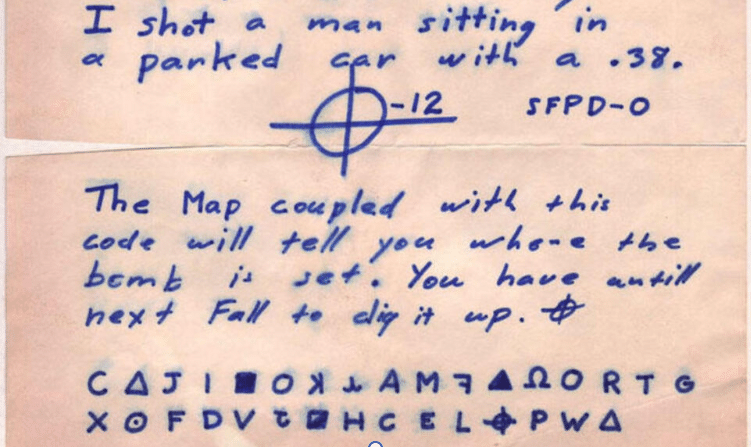 I shot a man sitting in
a parked car with a .38.
-12 SFPD-0
The Map coupled with this
code will tell you whone the
bomb is set. You have untill
next Fall to dig it up. ⌖
C △ J I ■ O ꓘ ⅄ A M ꟻ ▲ Ω O R T G
X ⊙ F D V ꓙ ◪ H C E L ⌖ P W △